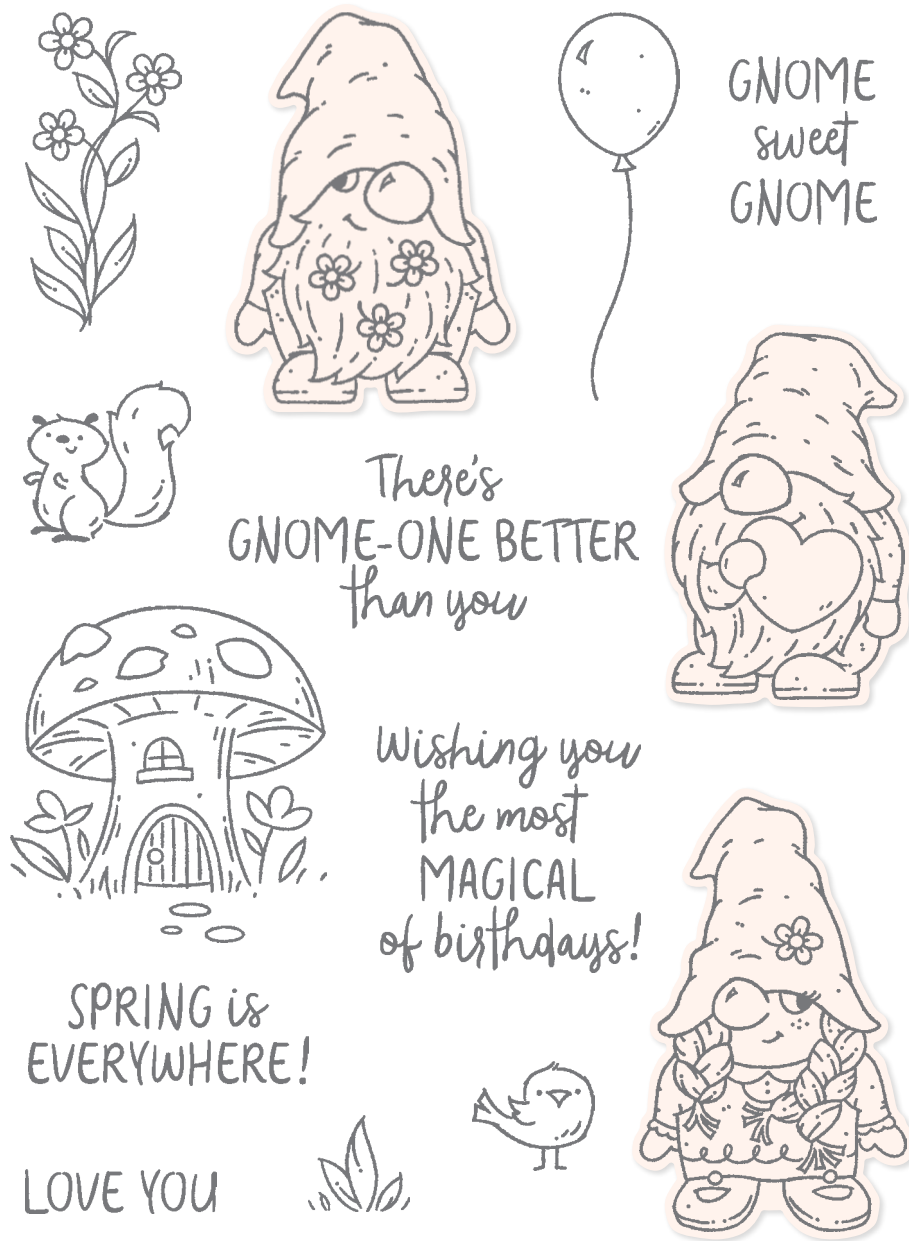 GNOME
sweet
GNOME
There's
GNOME-ONE BETTER
than you
Wishing you
the most
MAGICAL
of birthdays!
SPRING is
EVERYWHERE!
LOVE YOU